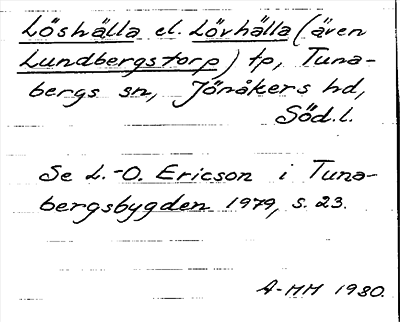 Löshälla el. Lövhälla (även
Lundbergstorp) tp, Tuna-
bergs sn, Jönåkers hd,
Söd.l.
Se L.-O. Ericson i Tuna-
bergsbygden 1979, s. 23.
A-MM 1980.